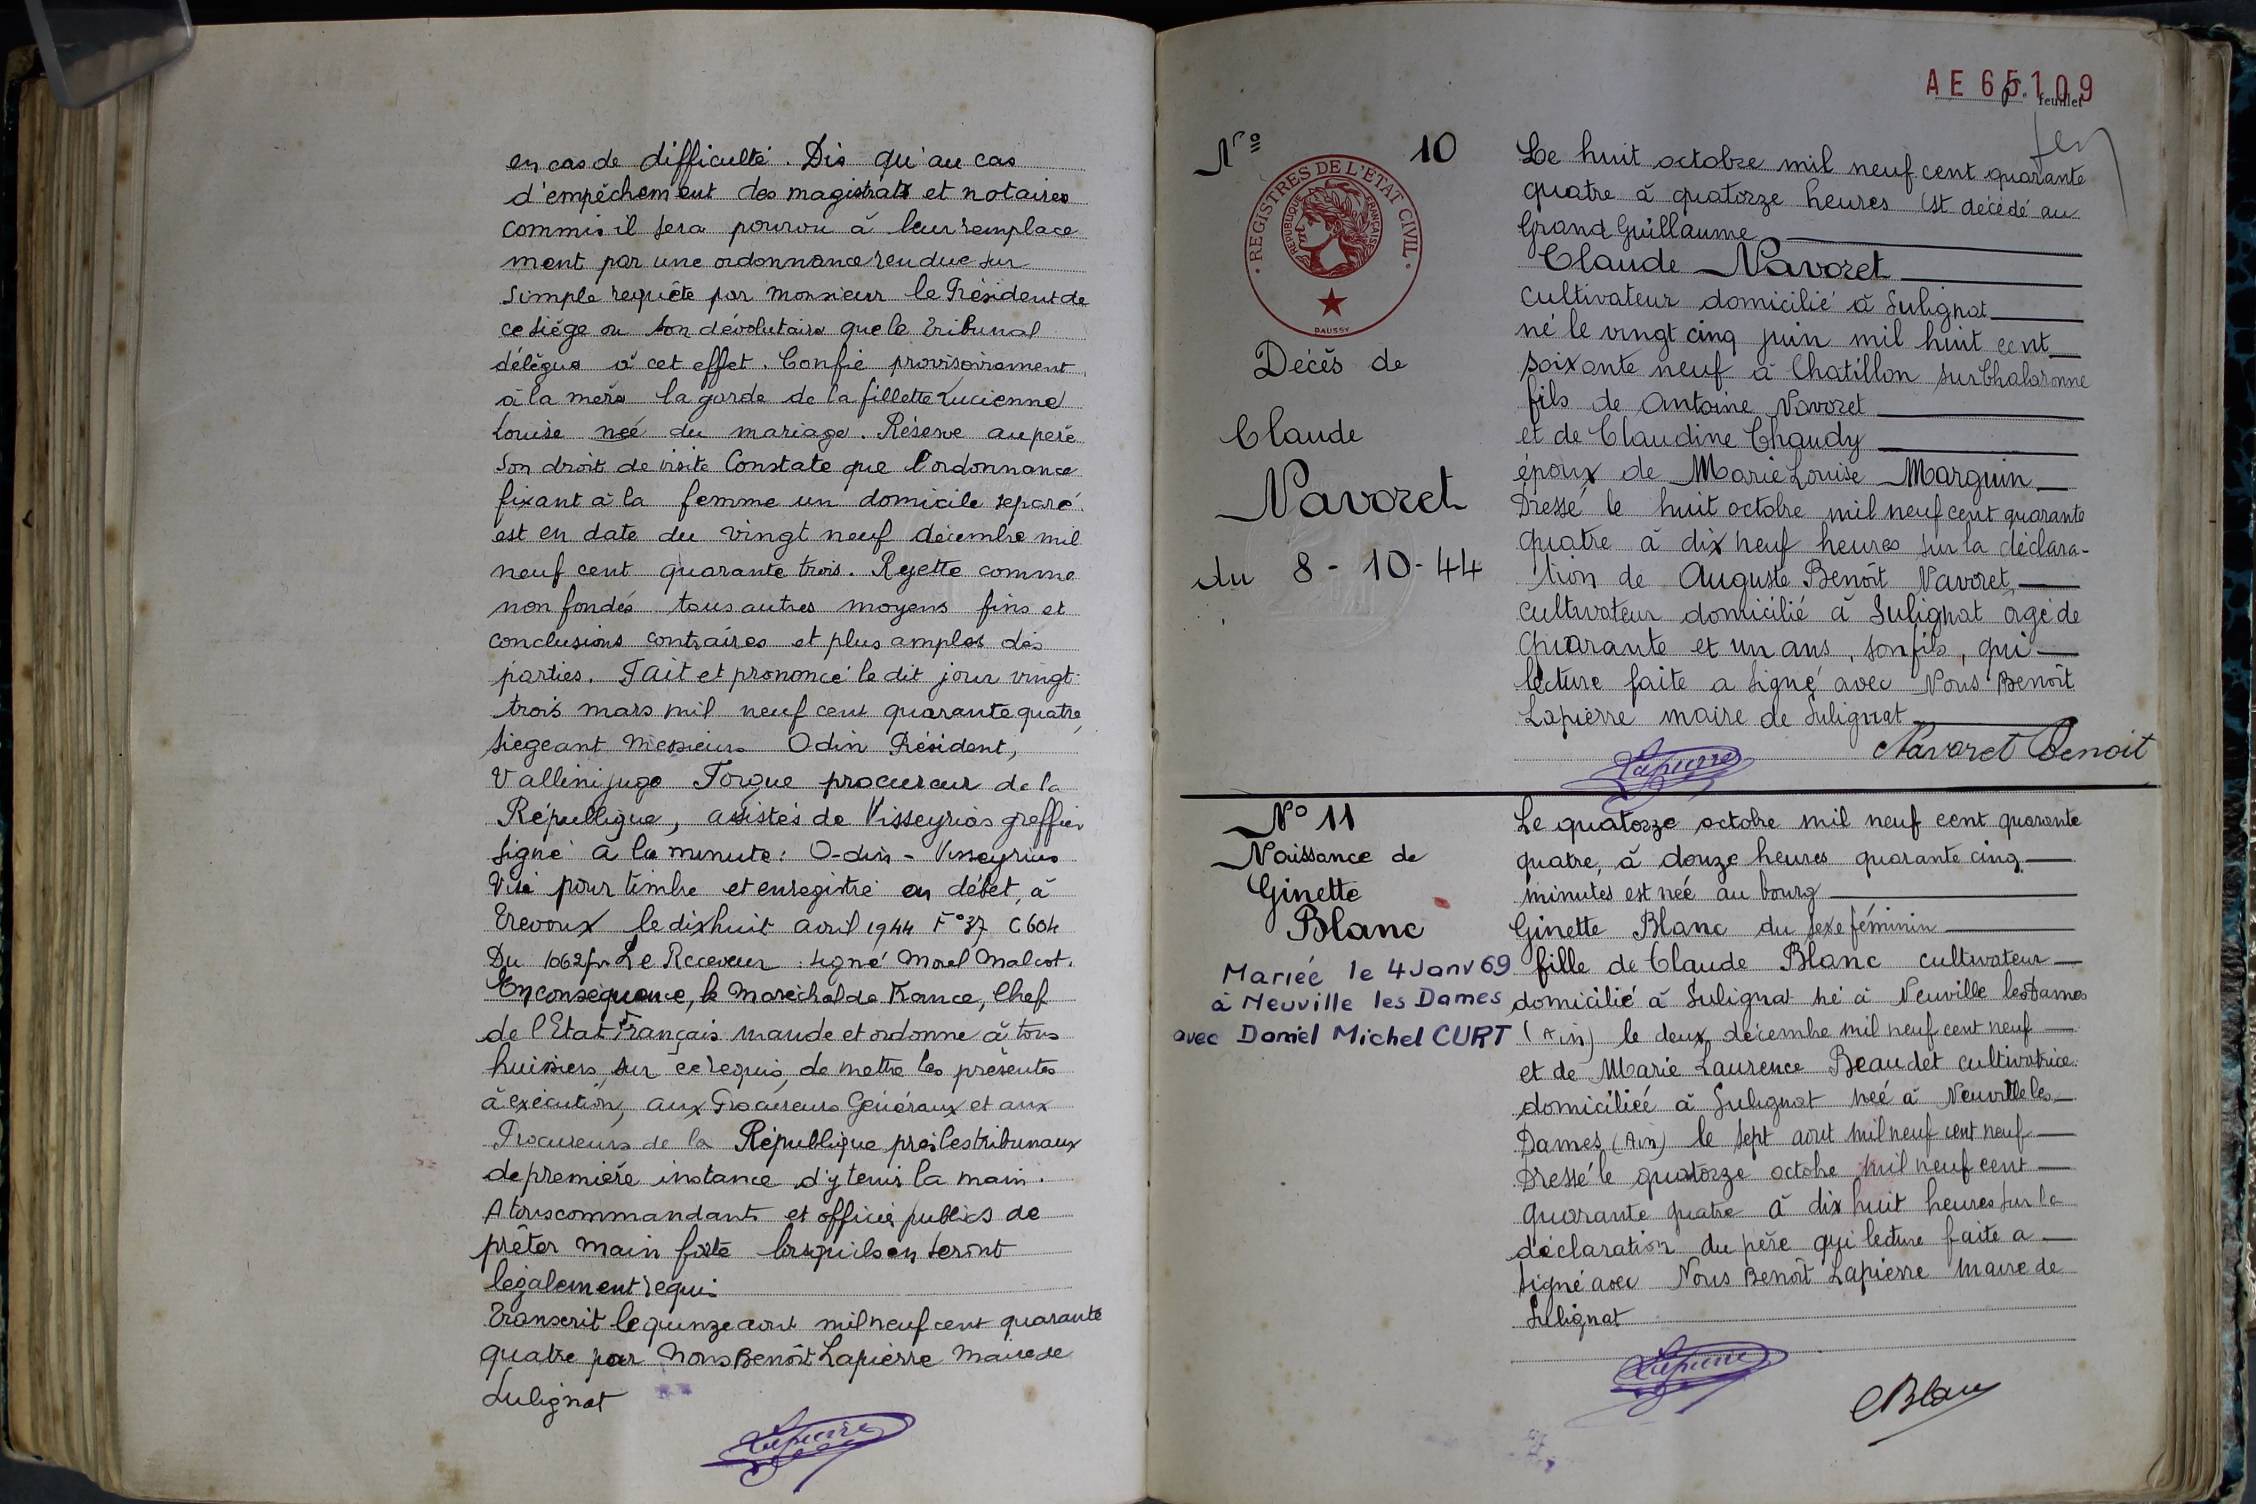 en cas de difficulté. Dis qu'au cas
d'empêchement des magistrats et notaires
commis il sera pourvu à leur remplace
ment par une ordonnance rendue sur
simple requête par Monsieur le Président de
ce siège ou son dévolutaire que le Tribunal
délègue à cet effet. Confie provisoirement
à la mère la garde de la fillette Lucienne
Louise née du mariage. Réserve au père
son droit de visite Constate que l'ordonnance
fixant à la femme un domicile separé
est en date du vingt neuf décembre mil
neuf cent quarante trois. Rejette comme
non fondés tous autres moyens fins et
conclusions contraires et plus amples des
parties. Fait et prononcé le dit jour vingt
trois mars mil neuf cent quarante quatre,
siégeant Messieurs Odin Président,
Vallini juge Torgue procureur de la
République, assistés de Visseyrias greffier
Signé à la minute : Odin - Visseyrias
Visé pour timbre et enregistré en débet, à
Trevoux le dix huit avril 1944 F° 37 C 604
Du 1062 fr Le Receveur : signé Morel Malcot.
En consequence, le Maréchal de France, Chef
de l'Etat Français mande et ordonne à tous
huissiers, sur ce requis, de mettre les présentes
à exécution, aux Procureurs Généraux et aux
Procureurs de la République près les tribunaux
de première instance d'y tenir la main.
A tous commandants et officiers publics de
prêter main forte lorsqu'ils en seront
légalement requis
Transcrit le quinze aout mil neuf cent quarante
quatre par Nous Benoît Lapierre Maire de
Sulignat
Lapierre
AE 65109
feuillet
N° 10
REGISTRES DE L'ETAT CIVIL
REPUBLIQUE FRANÇAISE
DAUSSY
Décès de
Claude
Navoret
du 8 - 10 - 44
Le huit octobre mil neuf cent quarante
quatre à quatorze heures est décédé au
Grand Guillaume
Claude Navoret
cultivateur domicilié à Sulignat
né le vingt cinq juin mil huit cent
soixante neuf à Chatillon sur Chalaronne
fils de Antoine Navoret
et de Claudine Chaudy
époux de Marie Louise Marguin
Dressé le huit octobre mil neuf cent quarante
quatre à dix neuf heures sur la déclara-
tion de Auguste Benoît Navoret,
cultivateur domicilié à Sulignat agé de
quarante et un ans, son fils, qui
lecture faite a signé avec Nous Benoît
Lapierre maire de Sulignat
Lapierre
Navoret Benoit
N° 11
Naissance de
Ginette
Blanc
Mariée le 4 Janv 69
à Neuville les Dames
avec Daniel Michel CURT
Le quatorze octobre mil neuf cent quarante
quatre, à douze heures quarante cinq
minutes est née au bourg
Ginette Blanc du sexe féminin
fille de Claude Blanc cultivateur
domicilié à Sulignat né à Neuville les Dames
(Ain) le deux décembre mil neuf cent neuf
et de Marie Laurence Beaudet cultivatrice
domiciliée à Sulignat née à Neuville les
Dames (Ain) le sept aout mil neuf cent neuf
Dressé le quatorze octobre mil neuf cent
quarante quatre à dix huit heures sur la
déclaration du père qui lecture faite a
signé avec Nous Benoît Lapierre Maire de
Sulignat
Lapierre
CBlanc